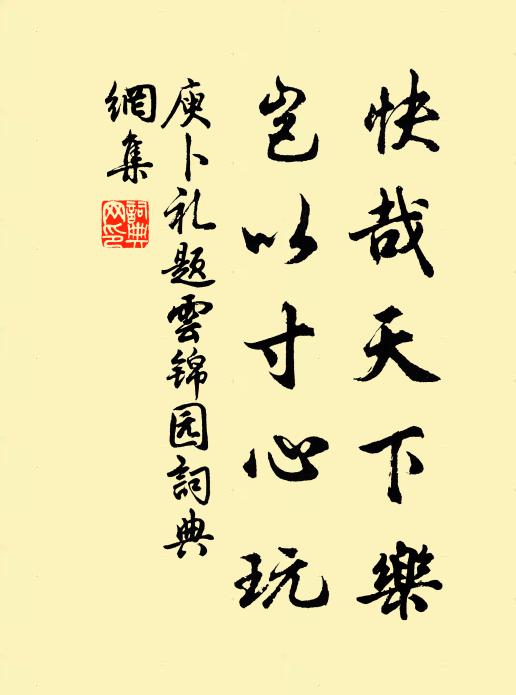 快哉天下樂
豈以寸心玩
庾卜礼題雲锦园詞典
網集
詞典
网印